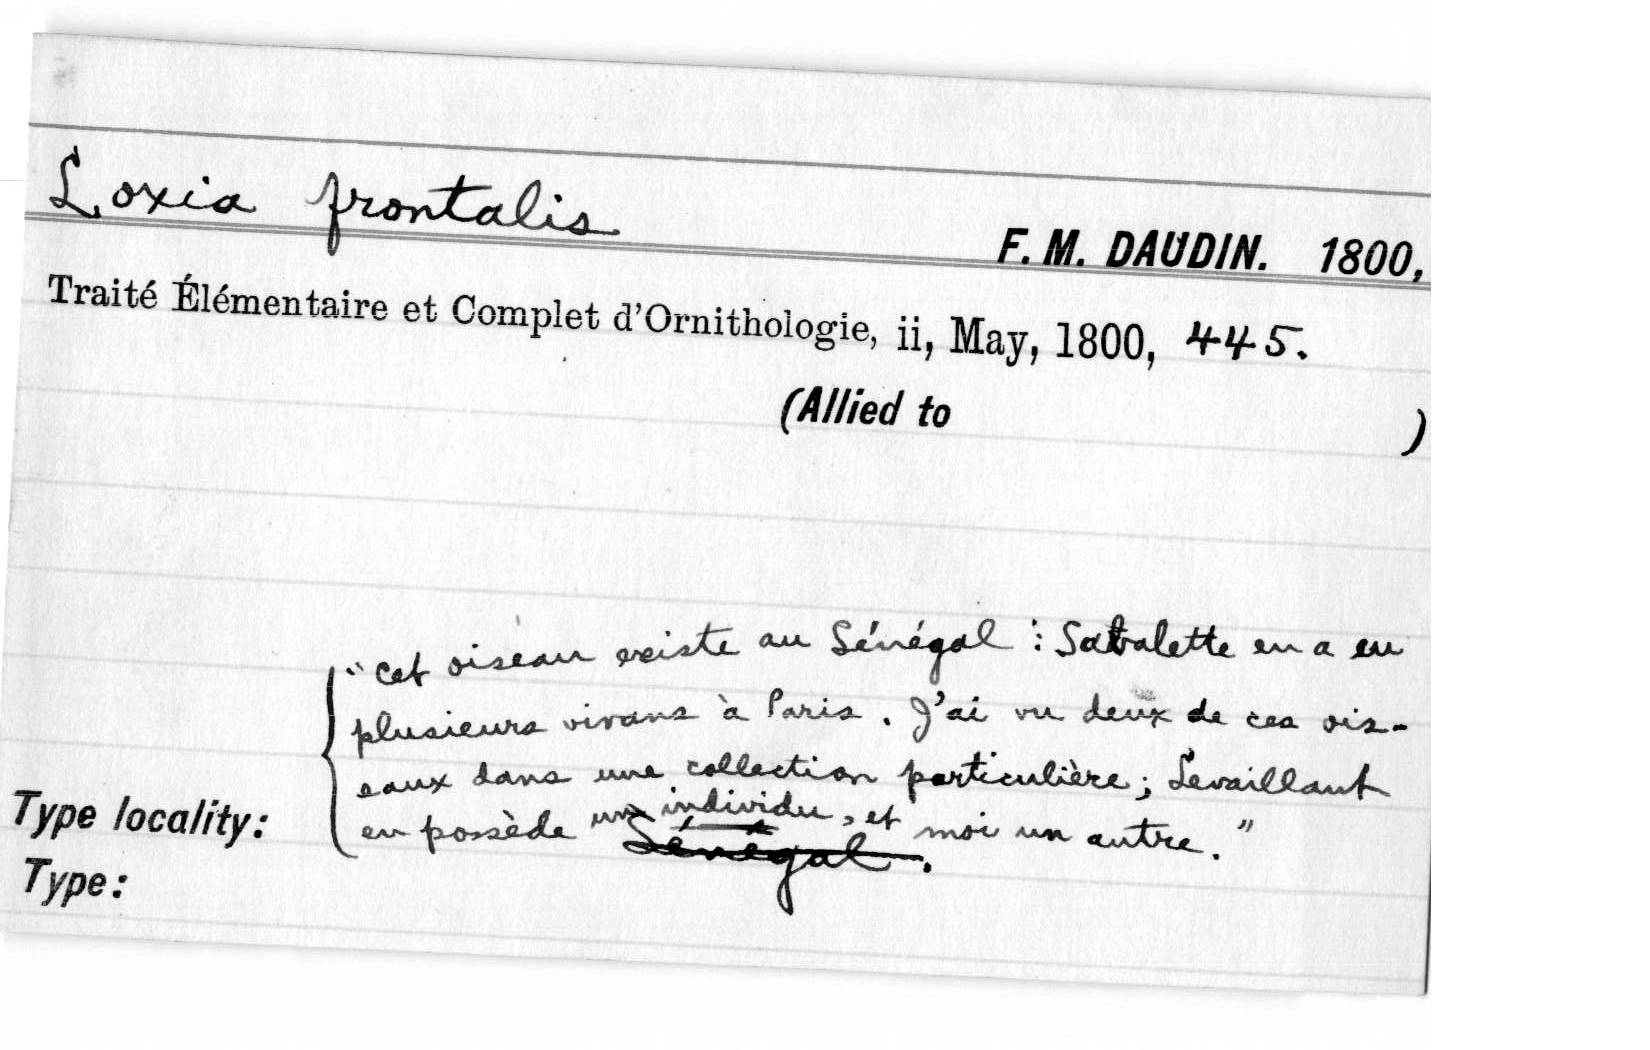 Loxia frontalis
F. M. DAUDIN. 1800,
Traité Élémentaire et Complet d'Ornithologie, ii, May, 1800, 445.
(Allied to )
"Cet oiseau existe au Sénégal : Sabalette en a eu
plusieurs vivans à Paris. J'ai vu deux de ces ois-
eaux dans une collection particulière; Levaillant
en possède un individu, et moi un autre."
Type locality: Sénégal.
Type: